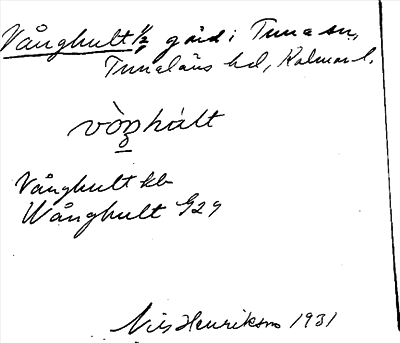 Vånghult ½ gård i Tuna sn,
Tunaläns hd, Kalmar l.
vòŋhàlt
Vånghult kb
Wånghult G29
Nils Henrikson 1931